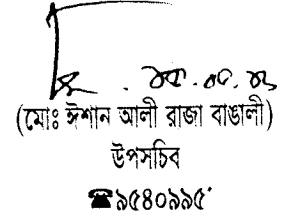 (মোঃ ঈশান আলী রাজা বাঙালী)
উপসচিব
☎৯৫৪০৯৯৫